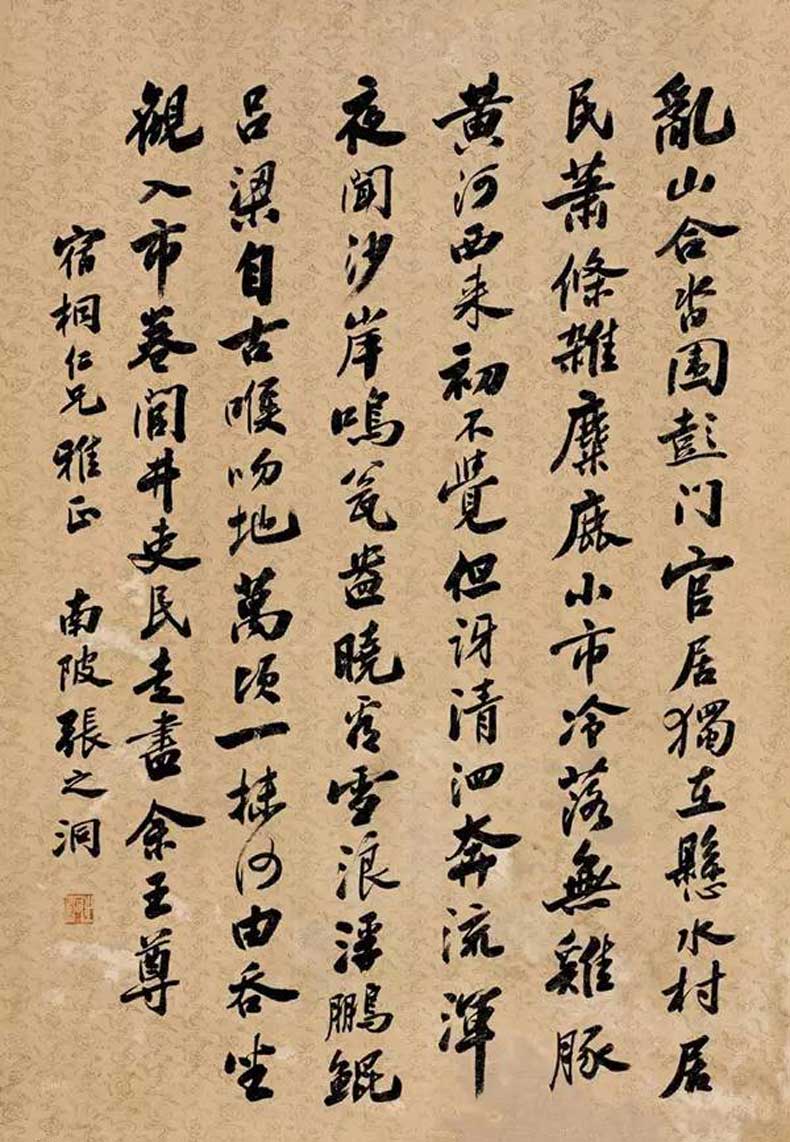 亂山合沓围彭门官居獨在懸水村居
民蕭條雜麋鹿小市冷落無雞豚
黄河西来初不覺但訝清泗奔流渾
夜聞沙岸鳴瓮盎曉看雪浪浮鵬鯤
吕梁自古喉吻地萬頃一抹何由吞坐
觀入市卷閭井吏民走盡余王尊
宿桐仁兄雅正 南陂張之洞